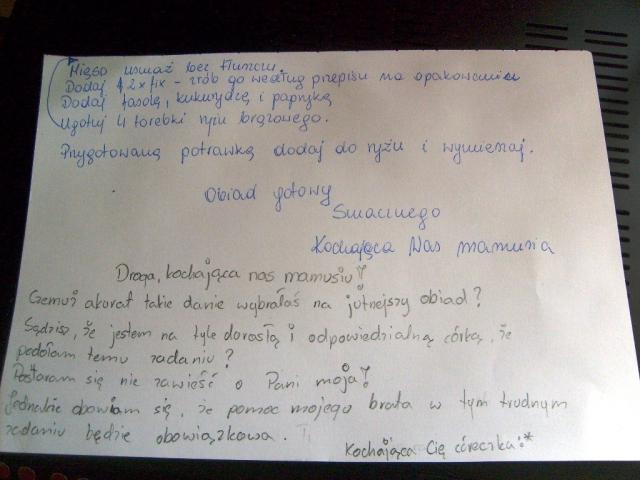 Mięso usmaż bez tłuszczu.
Dodaj 2x fix - zrób go według przepisu na opakowaniu
Dodaj fasolę, kukurydzę i paprykę
Ugotuj 4 torebki ryżu brązowego.
Przygotowaną potrawkę dodaj do ryżu i wymieszaj.
Obiad gotowy
Smacznego
Kochająca Was mamusia
Droga, kochająca nas mamusiu!
Czemuż akurat takie danie wybrałaś na jutrzejszy obiad?
Sądzisz, że jestem na tyle dorosłą i odpowiedzialną córką, że
podołam temu zadaniu?
Postaram się nie zawieść o Pani moja!
Jednakże obawiam się, że pomoc mojego brata w tym trudnym
zadaniu będzie obowiązkowa.
Kochająca Cię córeczka :*